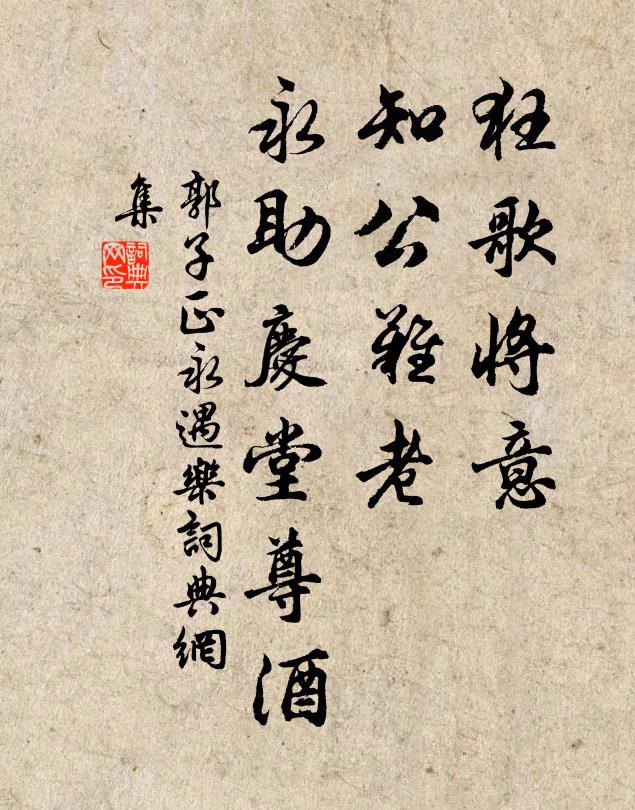 狂歌將意
知公難老
永助慶堂尊酒
郭子正永遇樂詞典網
集
詞典
网印